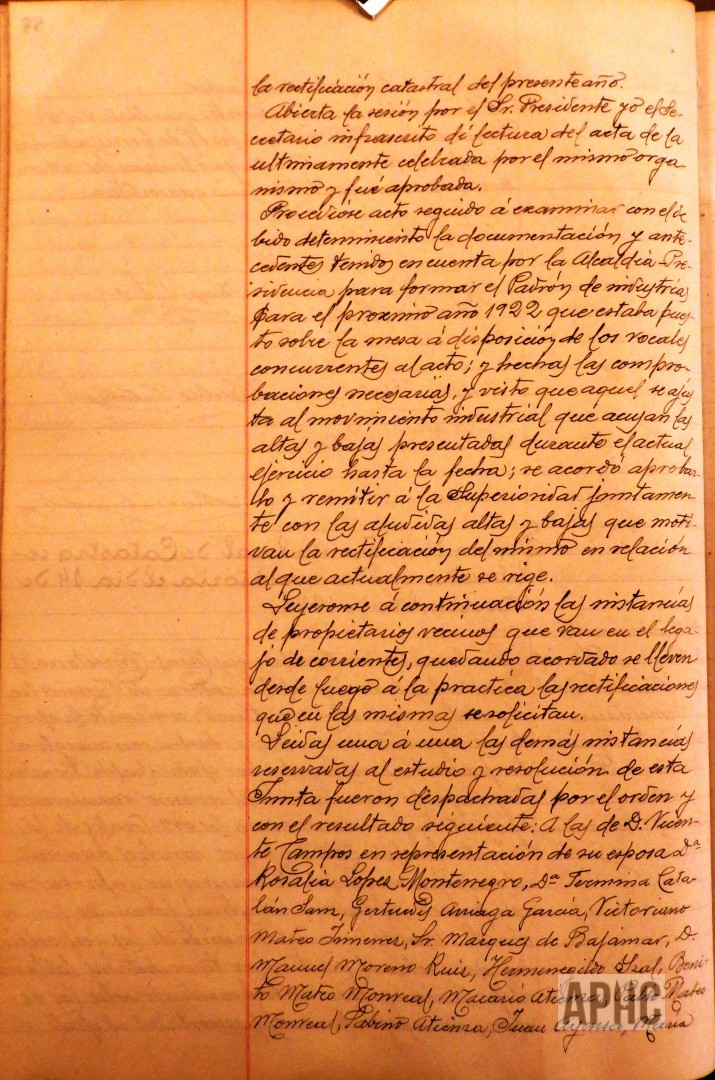 la rectificación catastral del presente año.
Abierta la sesión por el Sr. Presidente yo el Se-
cretario infrascrito dí lectura del acta de la
ultimamente celebrada por el mismo orga-
nismo y fué aprobada.
Procedióse acto seguido á examinar con el de
bido detenimiento la documentación y ante-
cedentes tenidos en cuenta por la Alcaldia Pre-
sidencia para formar el Padrón de industrias
para el proximo año 1922 que estaba pues-
to sobre la mesa á disposición de los vocales
concurrentes al acto; y hechas las compro-
baciones necesarias, y visto que aquel se ajus
ta al movimiento industrial que acusan las
altas y bajas presentadas durante el actual
ejercicio hasta la fecha; se acordó aprobar-
lo y remitir á la Superioridad juntamen-
te con las aludidas altas y bajas que moti-
van la rectificación del mismo en relación
al que actualmente se rige.
Leyeronse á continuación las instancias
de propietarios vecinos que van en el lega-
jo de corrientes, quedando acordado se lleven
desde luego á la practica las rectificaciones
que en las mismas se solicitan.
Leidas una á una las demás instancias
reservadas al estudio y resolución de esta
Junta fueron despachadas por el orden y
con el resultado siguiente: A las de D. Vicen-
te Campos en representación de su esposa Dª
Rosalia Lopez Montenegro, Dª Termina Cata-
lán Sanz, Gertrudis Arriaga García, Victoriano
Mateo Jimenez, Sr. Marques de Bajamar, D.
Manuel Moreno Ruiz, Hermenegildo Isal, Beni
to Mateo Monreal, Macario Atienza, Pablo Mateo
Monreal, Sabino Atienza, Juan María
APHC